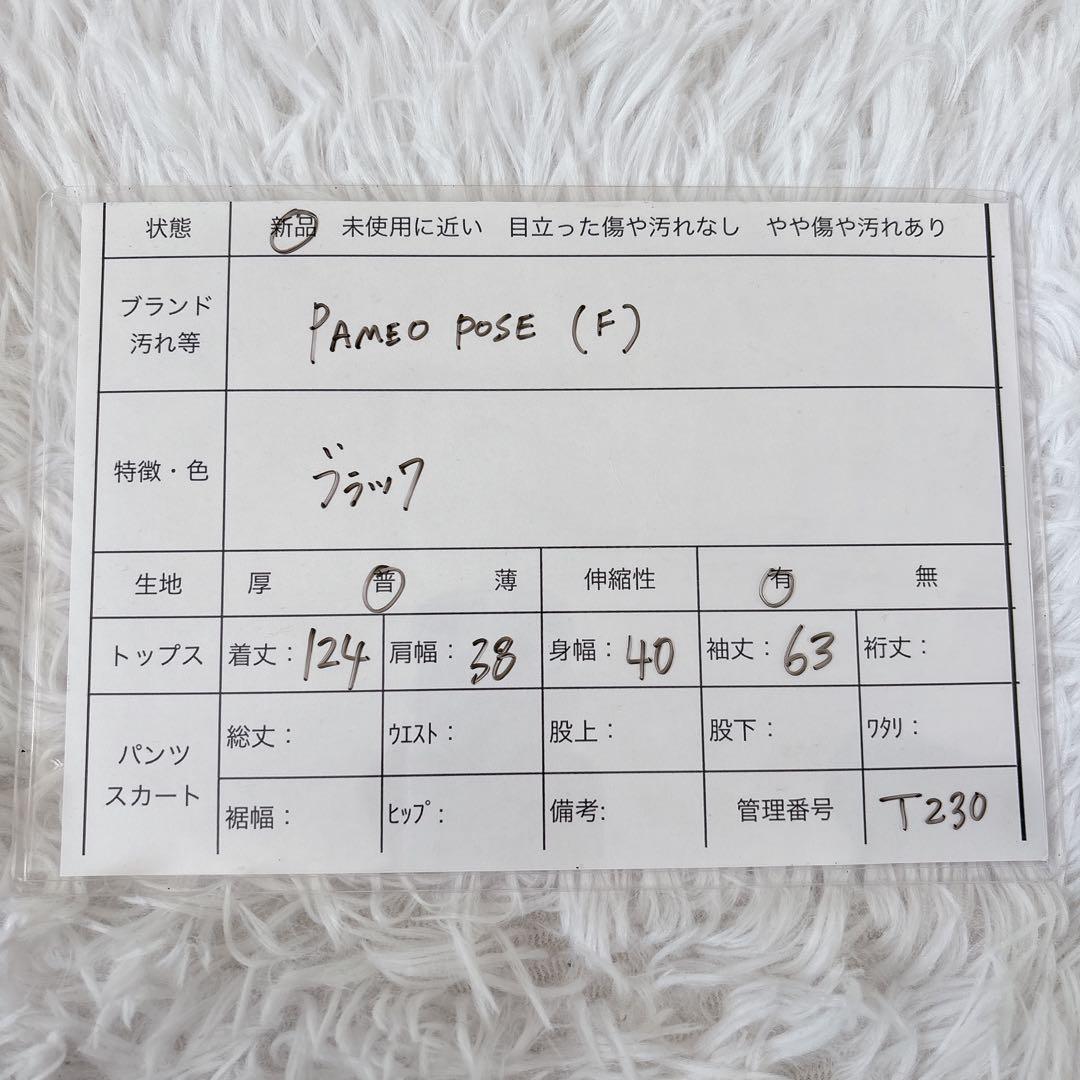 状態 新品 未使用に近い 目立った傷や汚れなし やや傷や汚れあり
ブランド
汚れ等
PAMEO POSE (F)
特徴・色 ブラック
生地 厚 普 薄 伸縮性 有 無
トップス 着丈：124 肩幅：38 身幅：40 袖丈：63 裄丈：
パンツ
スカート
総丈： ｳｴｽﾄ： 股上： 股下： ﾜﾀﾘ：
裾幅： ﾋｯﾌﾟ： 備考: 管理番号 T230